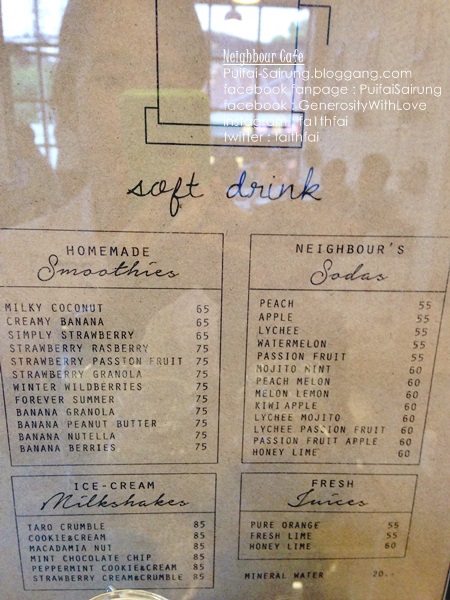 Neighbour Cafe
Puifai-Sairung.bloggang.com
facebook fanpage : PuifaiSairung
facebook : GenerosityWithLove
instagram : fa1thfai
twitter : fa1thfai
soft drink
HOMEMADE
Smoothies
MILKY COCONUT 65
CREAMY BANANA 65
SIMPLY STRAWBERRY 65
STRAWBERRY RASBERRY 75
STRAWBERRY PASSION FRUIT 75
STRAWBERRY GRANOLA 75
WINTER WILDBERRIES 75
FOREVER SUMMER 75
BANANA GRANOLA 75
BANANA PEANUT BUTTER 75
BANANA NUTELLA 75
BANANA BERRIES 75
NEIGHBOUR'S
Sodas
PEACH 55
APPLE 55
LYCHEE 55
WATERMELON 55
PASSION FRUIT 55
MOJITO MINT 60
PEACH MELON 60
MELON LEMON 60
KIWI APPLE 60
LYCHEE MOJITO 60
LYCHEE PASSION FRUIT 60
PASSION FRUIT APPLE 60
HONEY LIME 60
ICE-CREAM
Milkshakes
TARO CRUMBLE 85
COOKIE&CREAM 85
MACADAMIA NUT 85
MINT CHOCOLATE CHIP 85
PEPPERMINT COOKIE&CREAM 85
STRAWBERRY CREAM&CRUMBLE 85
FRESH
Juices
PURE ORANGE 55
FRESH LIME 55
HONEY LIME 60
MINERAL WATER 20.-